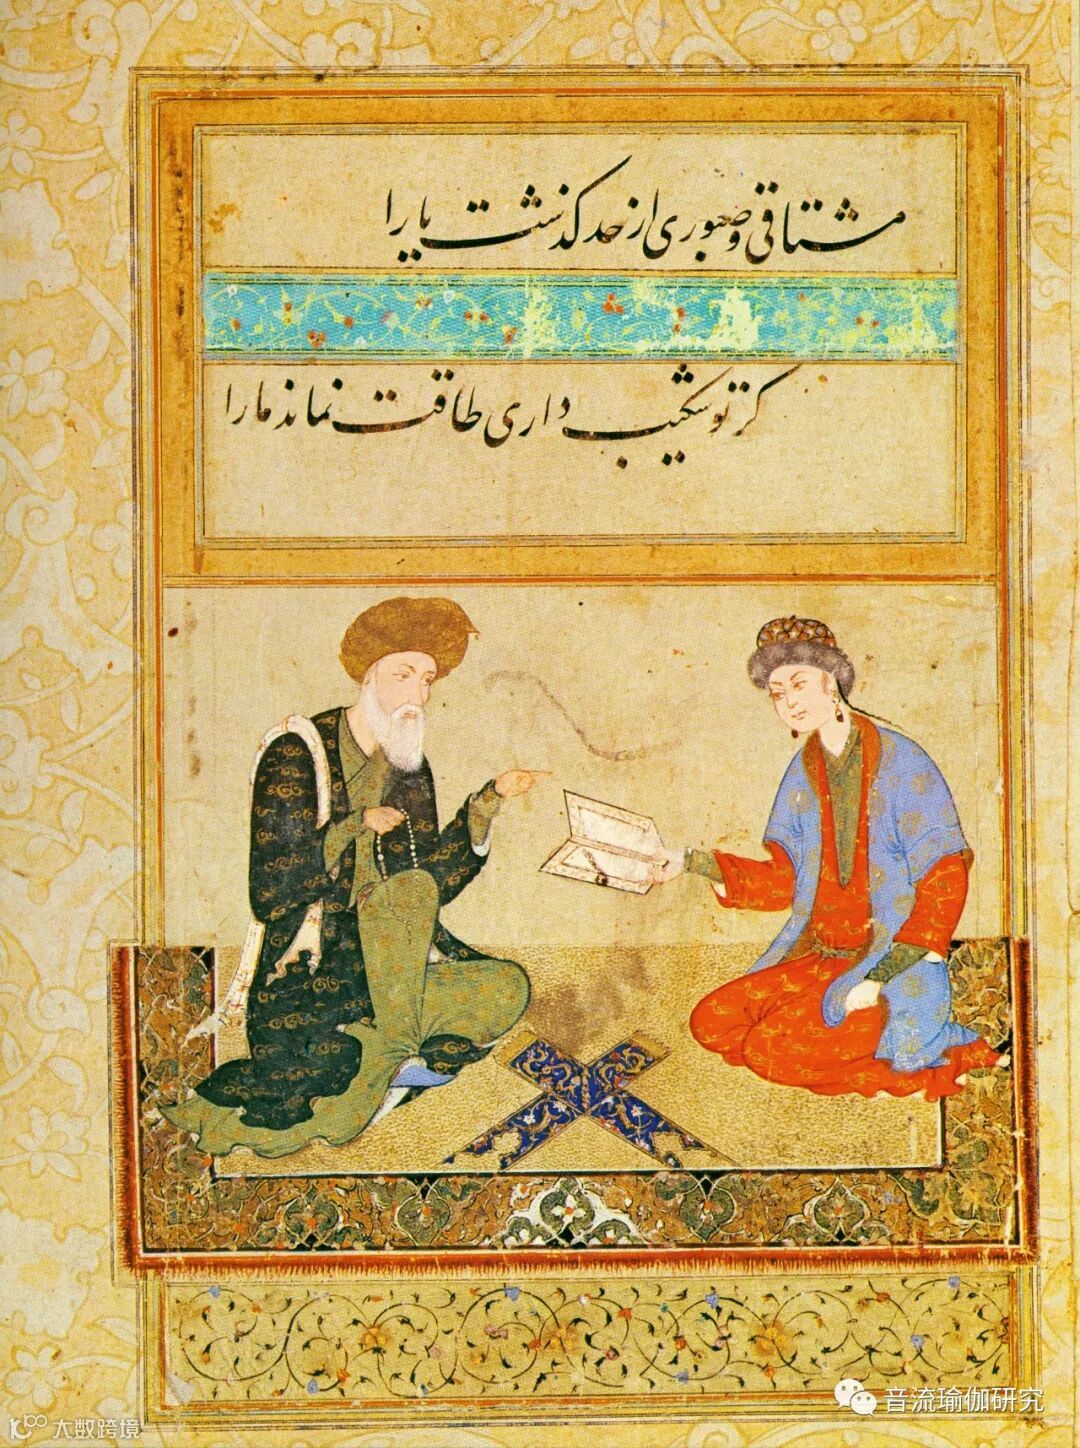 مشتاقی و صبوری از حد کذشت یارا
کر تو شکیب داری طاقت نماند مارا
音流瑜伽研究
大数跨境